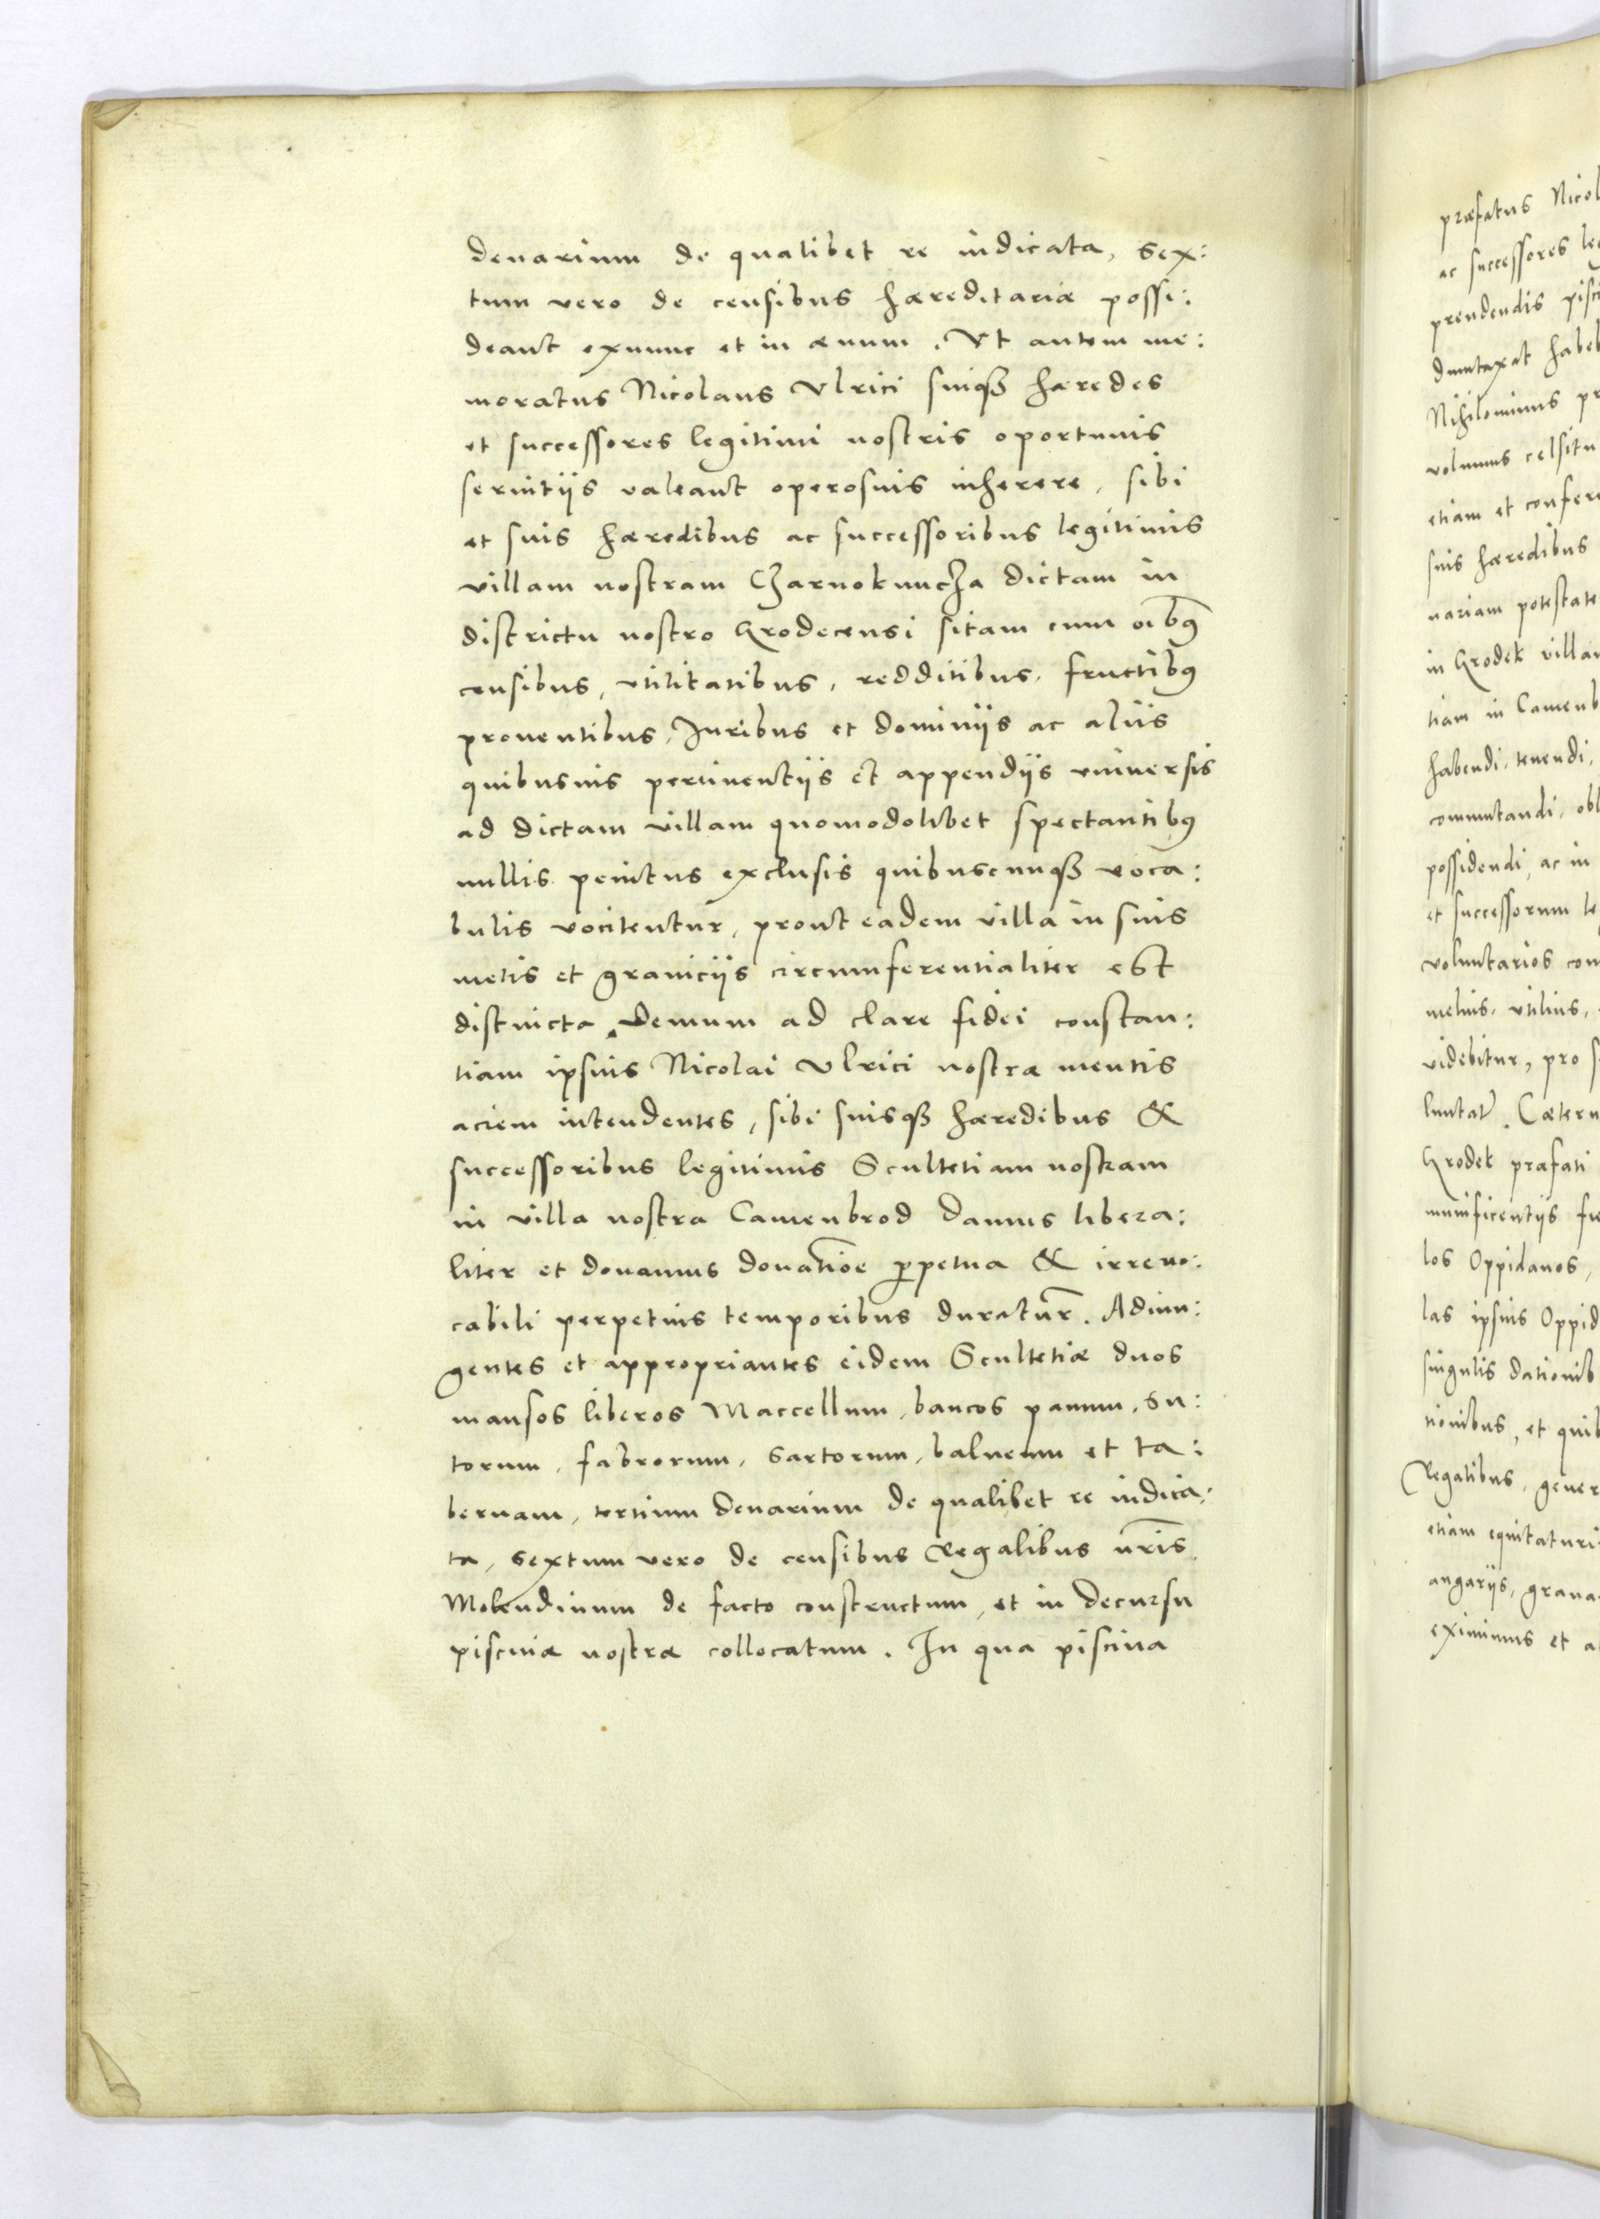 denarium de qualibet re iudicata, sex:
tum vero de censibus hæreditariæ possi:
deant exnunc et in æuum. Ut autem me:
moratus Nicolaus Ulrici suiqȝ hæredes
et successores legitimi nostris oportunis
seruitijs valeant operosius inherere, sibi
et suis hæredibus ac successoribus legitimis
villam nostram Czarnokuncza dictam in
districtu nostro Grodecensi sitam cum oibꝰ
censibus, vtilitatibus, redditibus, fructibꝰ
prouentibus, Juribus et dominijs ac alijs
quibusuis pertinentijs et appendijs vniuersis
ad dictam villam quomodolibet spectantibꝰ
nullis penitus exclusis quibuscunqȝ voca:
bulis vocitentur, prout eadem villa in suis
metis et granicijs circumferentialiter est
distincta. Demum ad clare fidei constan:
tiam ipsius Nicolai Ulrici nostræ mentis
aciem intendentes, sibi suisqȝ hæredibus &
successoribus legitimis Scultetiam nostram
in villa nostra Camenbrod damus libera:
liter et donamus donatiōe ꝑpetua & irreuo:
cabili perpetuis temporibus duratur̄. Adiun:
gentes et appropriantes eidem Scultetiæ duos
mansos liberos Maccellum, bancos panum, su:
torum, fabrorum, sartorum, balneum et ta:
bernam, tertium denarium de qualibet re iudica:
ta, sextum vero de censibus Regalibus nr̄is
Molendinum de facto constructum, et in decursu
piscinæ nostræ collocatum. In qua piscina
præfatus Nicol
ac successores le
prendendis pisci
duntaxat habeb
Nihilominus pr
volumus celsitu
etiam et confer
suis hæredibus
nariam potestate
in Grodek villa
tiam in Camenb
habendi, tenendi,
commutandi, obl
possidendi, ac in
et successorum le
voluntarios con
melius, vtilius,
videbitur, pro s
luntatr̄. Cæteru
Grodek præfati
munificentijs fr
los Oppidanos,
las ipsius Oppid
singulis dationib
tionibus, et quib
Regalibus, gener
etiam equitaturi
angarijs, graua
eximimus et a